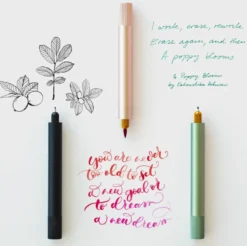 I write, erase, rewrite
Erase again, and then
A poppy blooms
A Poppy Blooms
by Katsushika Hokusai
you are never
too old to set
a new goal or
to dream
a new dream